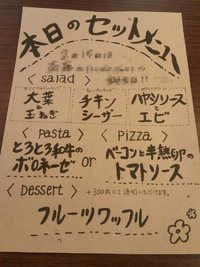 本日のセットメニュー
< salad >
大葉
と
玉ねぎ
チキン
シーザー
ハヤシソース
と
エビ
< pasta >
とろとろ和牛の
ボロネーゼ
or
< pizza >
ベーコンと半熟卵の
トマトソース
< Dessert >
+300円にてご利用いただけます。
フルーツワッフル